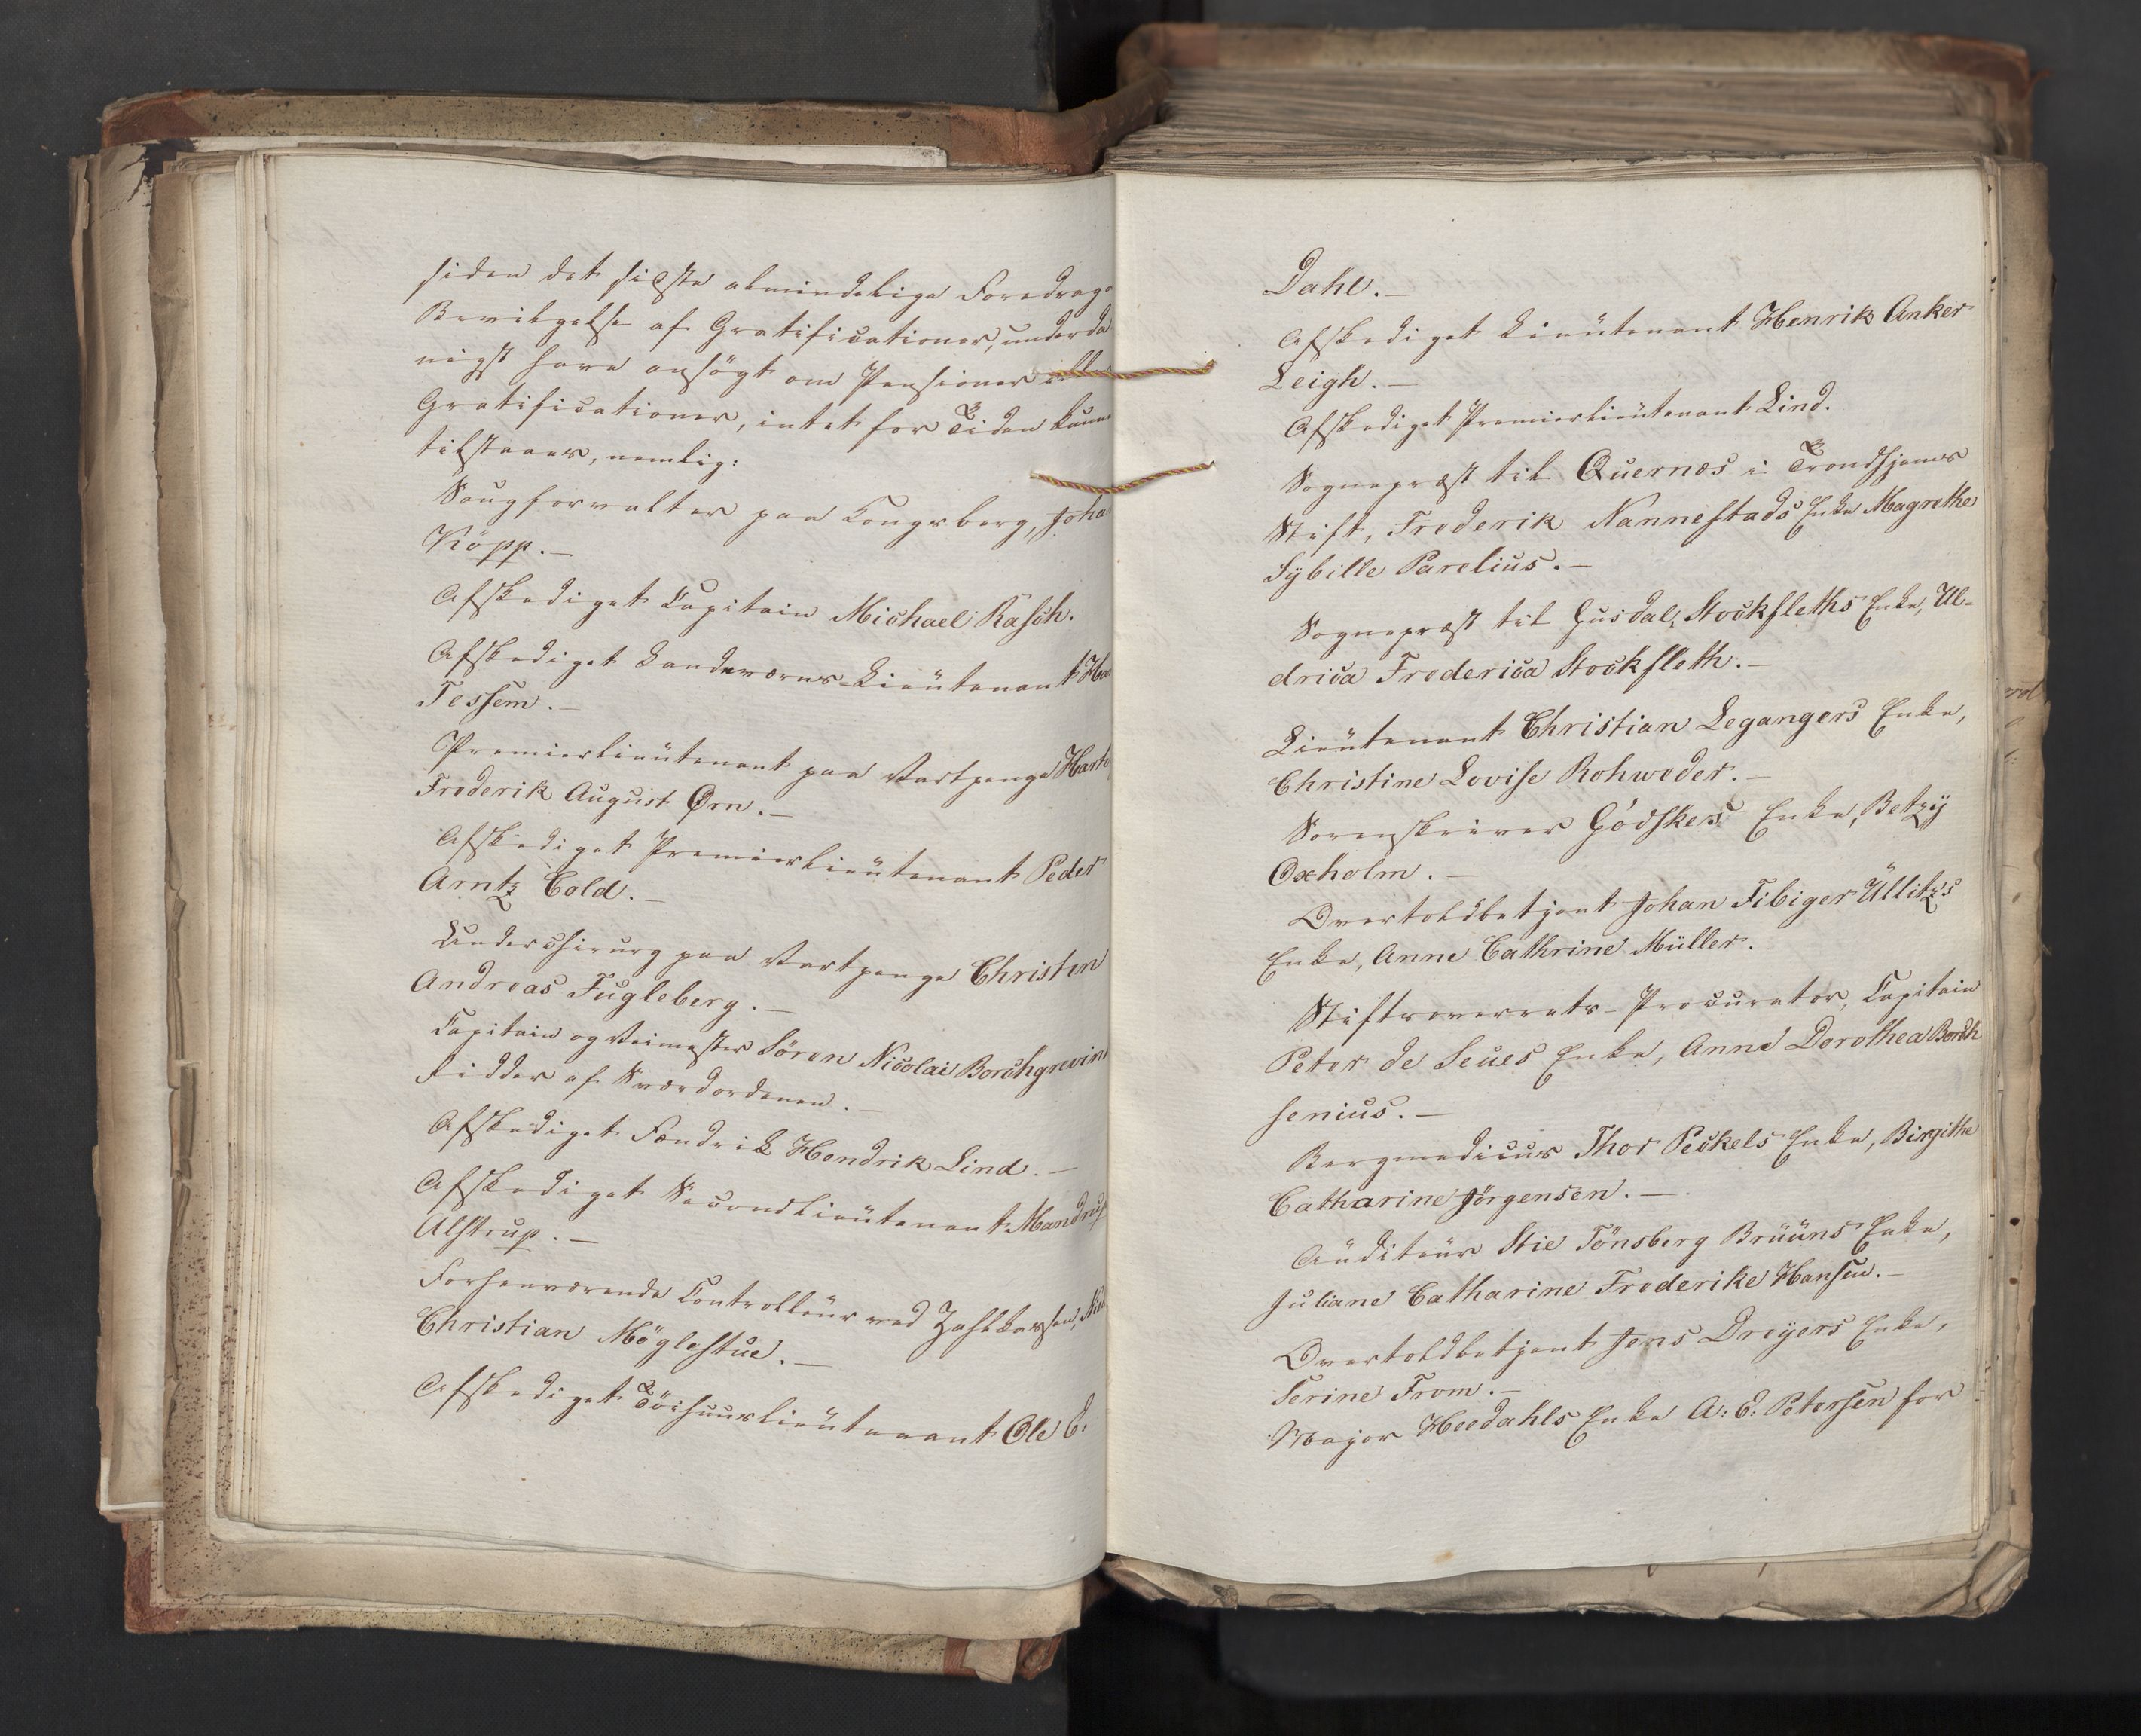 siden det sidste almindelige Foredrag
Bevilgelse af Gratificationer, underda
nigst have ansögt om Pensioner eller
Gratificationer, intet for Tiden kunne
tilstaaes, nemlig:
Saugforvalter paa Kongsberg, Joha
Köpp. –
Afskediget Capitain Michael Rasch.
Afskediget Landeværns-Lieutenant
Tessem. –
Premierlieutenant paa Vartpenge Hart
Frederik August Ørn. –
Afskediget Premierlieutenant Peder
Arntz Cold. –
Underchirurg paa Vartpenge Christen
Andreas Fugleberg. –
Capitain og Veimester Sören Nicolai Borchgrevin
Ridder af Sværdordenen. –
Afskediget Fændrik Hendrik Lind. –
Afskediget Secondlieutenant Mandrup
Alstrup. –
Forhenværende Controlleur ved Zahlkassen, Niel
Christian Möglestue. –
Afskediget Töihuuslieutenant Ole C:
Dahl. –
Afskediget Lieutenant Henrik Anker
Leigh. –
Afskediget Premierlieutenant Lind.
Sognepræst til Quernæs i Trondhjems
Stift, Frederik Nannestads Enke Magrethe
Sybille Parelius. –
Sognepræst til Gusdal, Stockfleths Enke, Ul-
drica Frederica Stockfleth. –
Lieutenant Christian Legangers Enke,
Christine Lovise Rohweder. –
Sorenskriver Gödskes Enke, Betzy
Oxholm. –
Overtoldbetjent Johan Fibiger Üllitz's
Enke, Anne Cathrine Müller.
Stiftsoverrets-Procurator, Capitain
Peter de Seues Enke, Anne Dorothea Borch
senius. –
Bergmedicus Thor Peckels Enke, Birgithe
Catharine Jörgensen. –
Auditeur Stie Tönsberg Brüüns Enke,
Juliane Catharine Frederike Hansen. –
Overtoldbetjent Jens Dreyers Enke,
Serine From. –
Major Heedahls Enke A: E: Petersen for